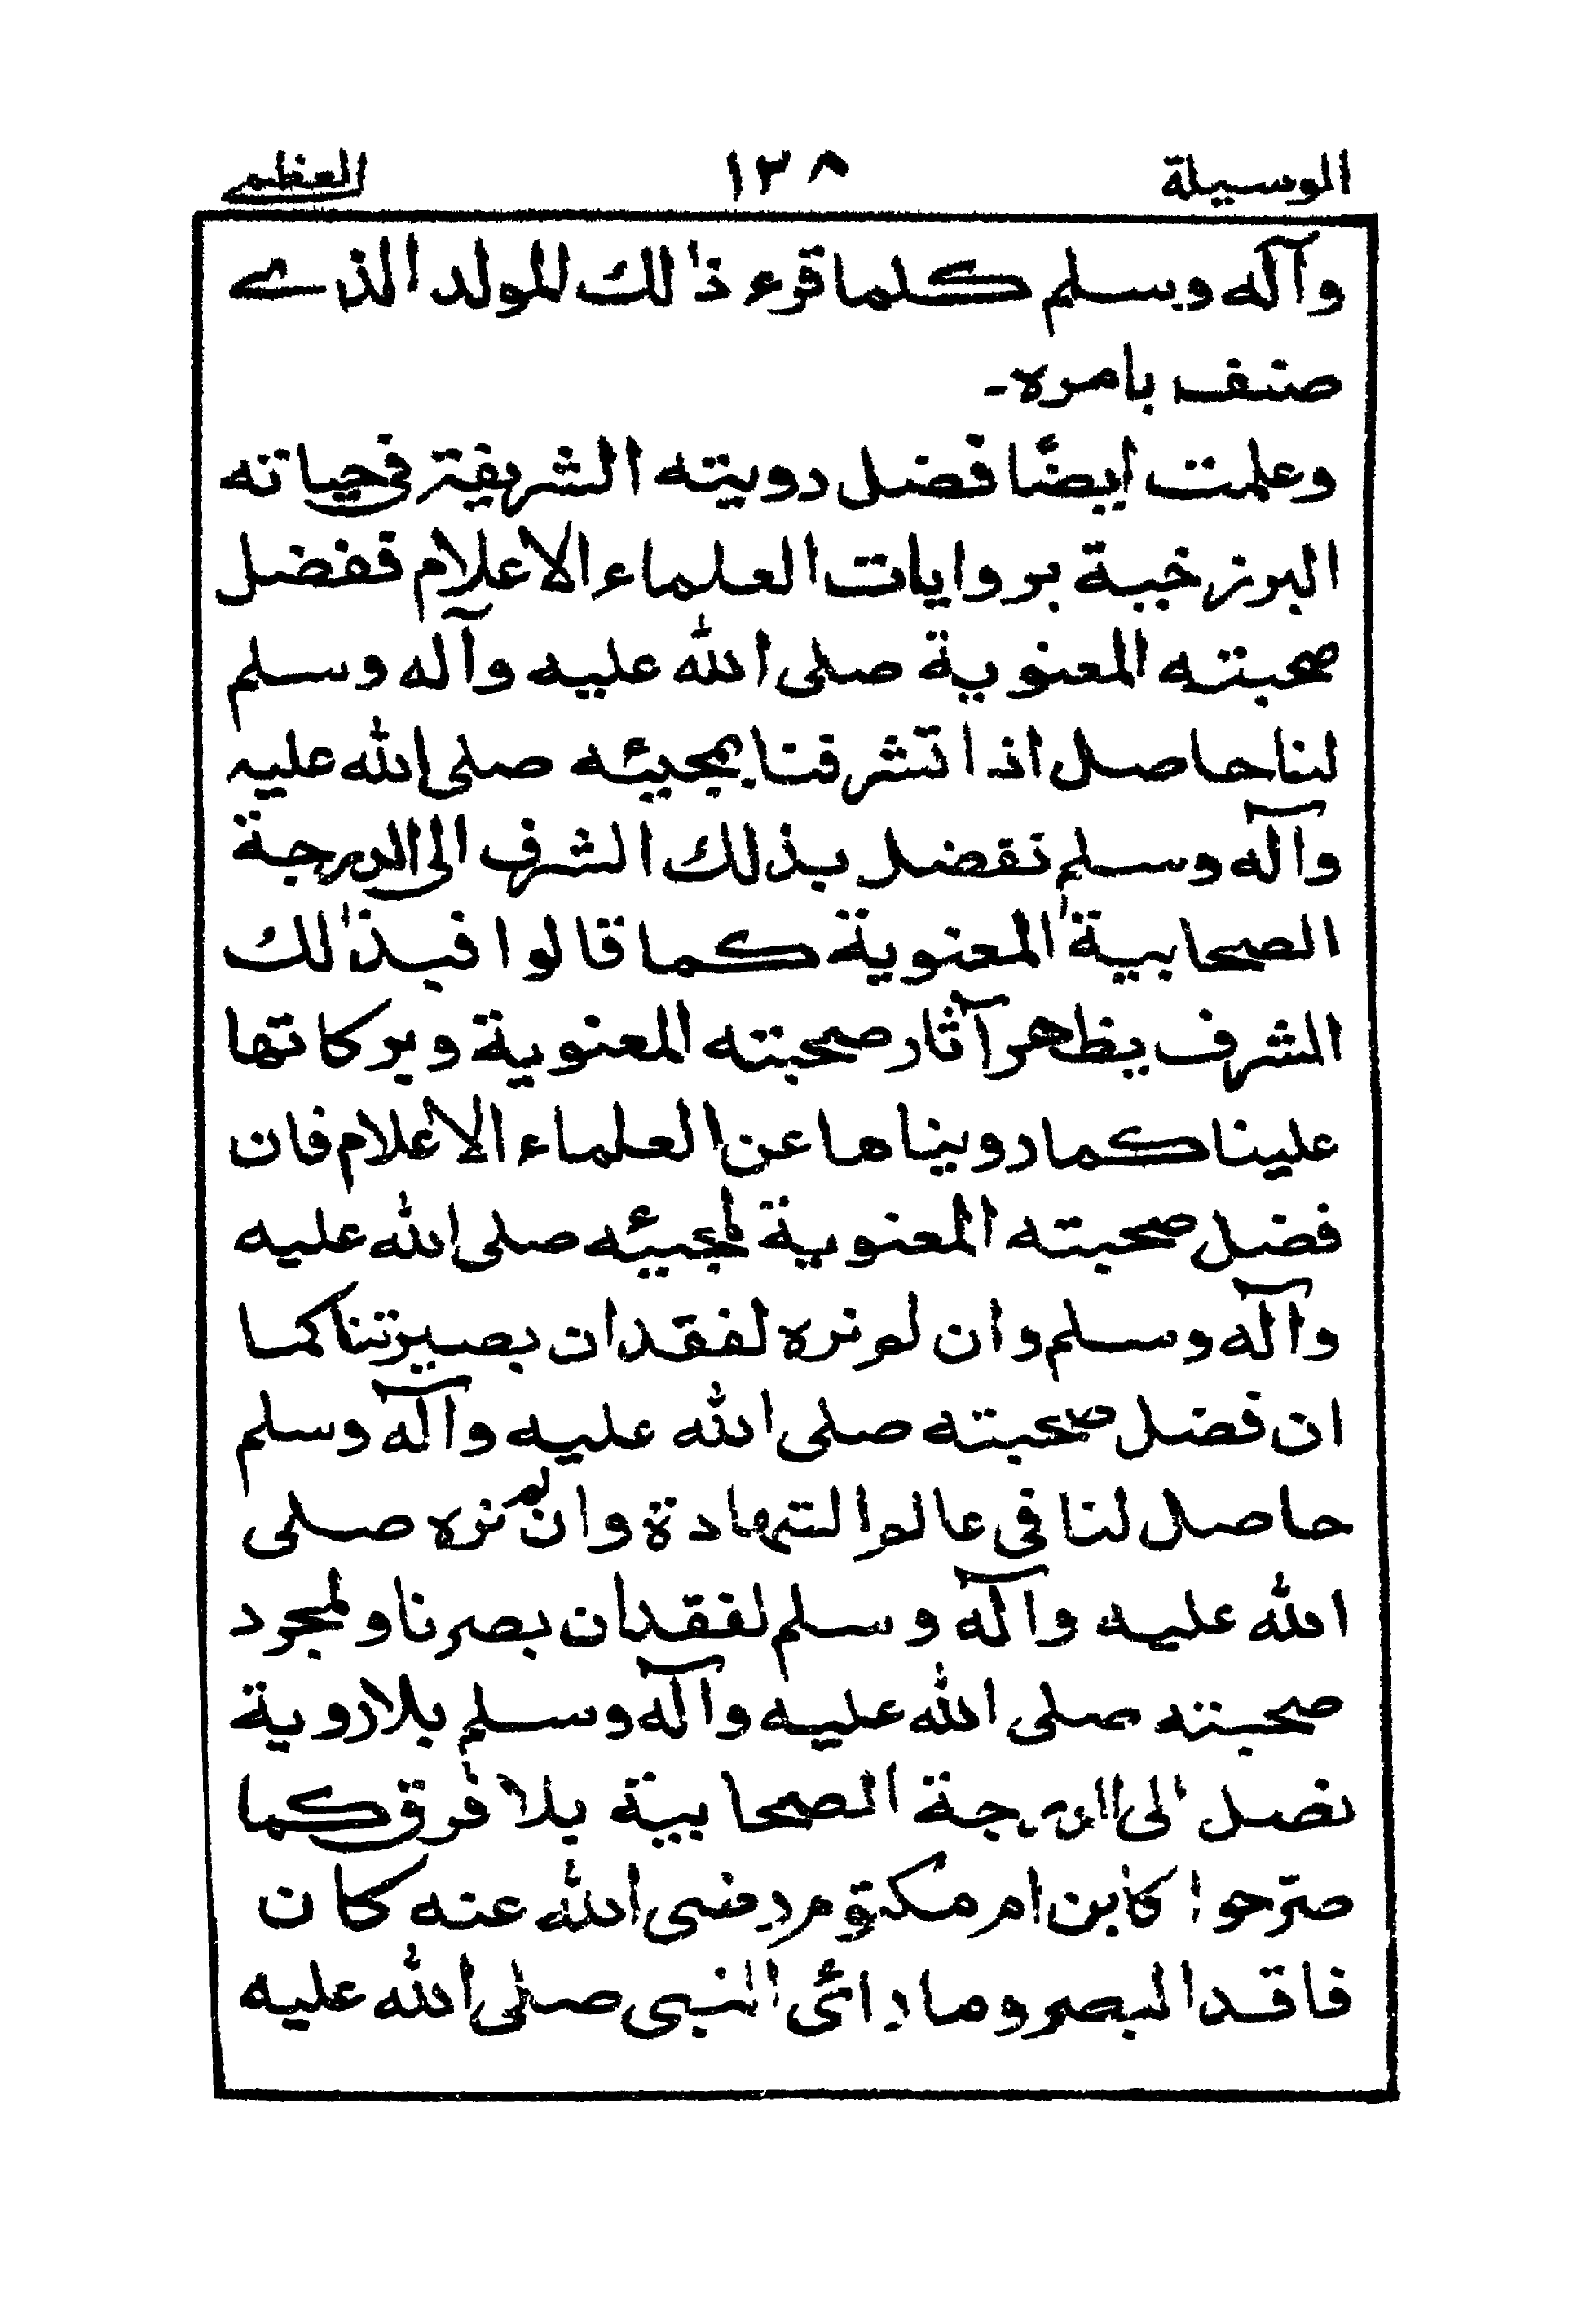 الوسيلة ١٣٨ العظمى
وآله وسلم كلما قرء ذالك المولد الذى
صنف بامره۔
وعلمت ايضًا فضل رويته الشريفة فى حياته
البرزخية بروايات العلماء الاعلام ففضل
صحبته المعنوية صلى الله عليه وآله وسلم
لنا حاصل اذا تشرفنا بمجيئه صلى الله عليه
وآله وسلم نفضل بذلك الشرف الى الدرجة
الصحابية المعنوية كما قالوا فبذالك
الشرف يظهر آثار صحبته المعنوية وبركاتها
علينا كما رويناها عن العلماء الاعلام فان
فضل صحبته المعنوية لمجيئه صلى الله عليه
وآله وسلم وان لم نره لفقدان بصيرتنا كما
ان فضل صحبته صلى الله عليه وآله وسلم
حاصل لنا فى عالم الشهادة وان لم نره صلى
الله عليه وآله وسلم لفقدان بصرنا ولمجرد
صحبته صلى الله عليه وآله وسلم بلا روية
نصل الى الدرجة الصحابية بلا فرق كما
صرّحوا كابن ام مكتوم رضى الله عنه كان
فاقد البصر وما رائى النبى صلى الله عليه